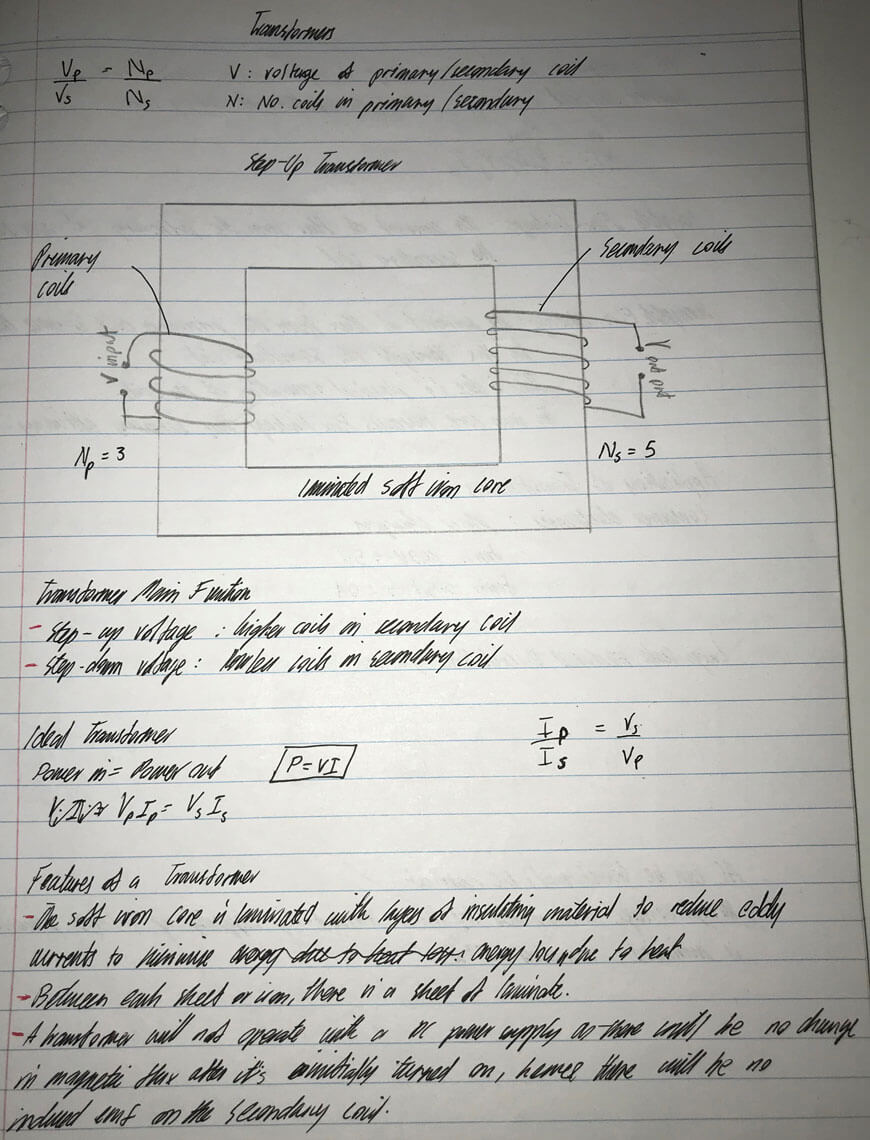 Transformers
Vp/Vs = Np/Ns V: voltage of primary/secondary coil
N: No. coils in primary/secondary
Step-Up Transformer
Primary coils
Secondary coils
V input
V output
Np = 3
Ns = 5
laminated soft iron core
Transformer Main Function
- Step-up voltage : higher coils in secondary coil
- Step-down voltage: coils in secondary coil
Ideal Transformer
Ip/Is = Vs/Vp
Power in = Power out P = VI
VpIp = VsIs
Features of a Transformer
- The soft iron core is laminated with layers of insulating material to reduce eddy
currents to minimise energy due to heat loss. energy loss due to heat
- Between each sheet of iron, there is a sheet of laminate.
- A transformer will not operate with a DC power supply as there will be no change
in magnetic flux after it's initially turned on, hence there will be no
induced emf on the secondary coil.